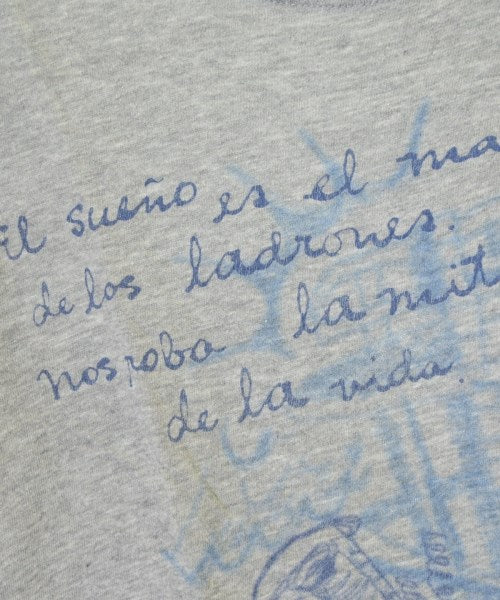 El sueño es el ma
de los ladrones.
nos roba la mit
de la vida.